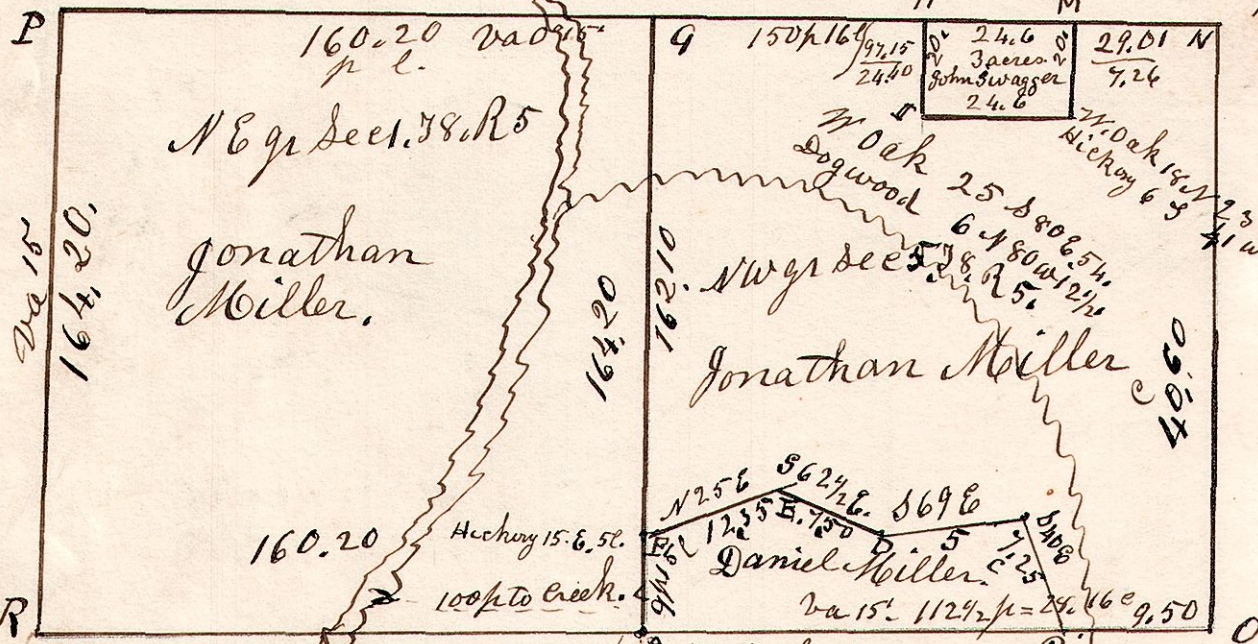 P
160.20 va 0°15'
p l.
N E qr Sec 1. T8. R5
Jonathan
Miller.
Va 15
164.20.
164.20
160.20
Hickory 15. E. 5l.
100p to Creek.
R
G
150p 16l
97.15
24.40
M
20.
24.6
3 acres
John Swagger
24.6
20.
29.01
7.26
N
W Oak 25 S80E 54.
Dogwood 6 N80W 12½.
W. Oak 18 N
Hickory 6 S
162.10
N W qr Sec T8. R5.
Jonathan Miller
C
40.60
N 25 E
12.35
S 62½ E.
E. 7.50
D
S 69 E
5
S40E
7.25
C
9p15l
Daniel Miller.
Va 15' 112½ p = 28.16 c
9.50